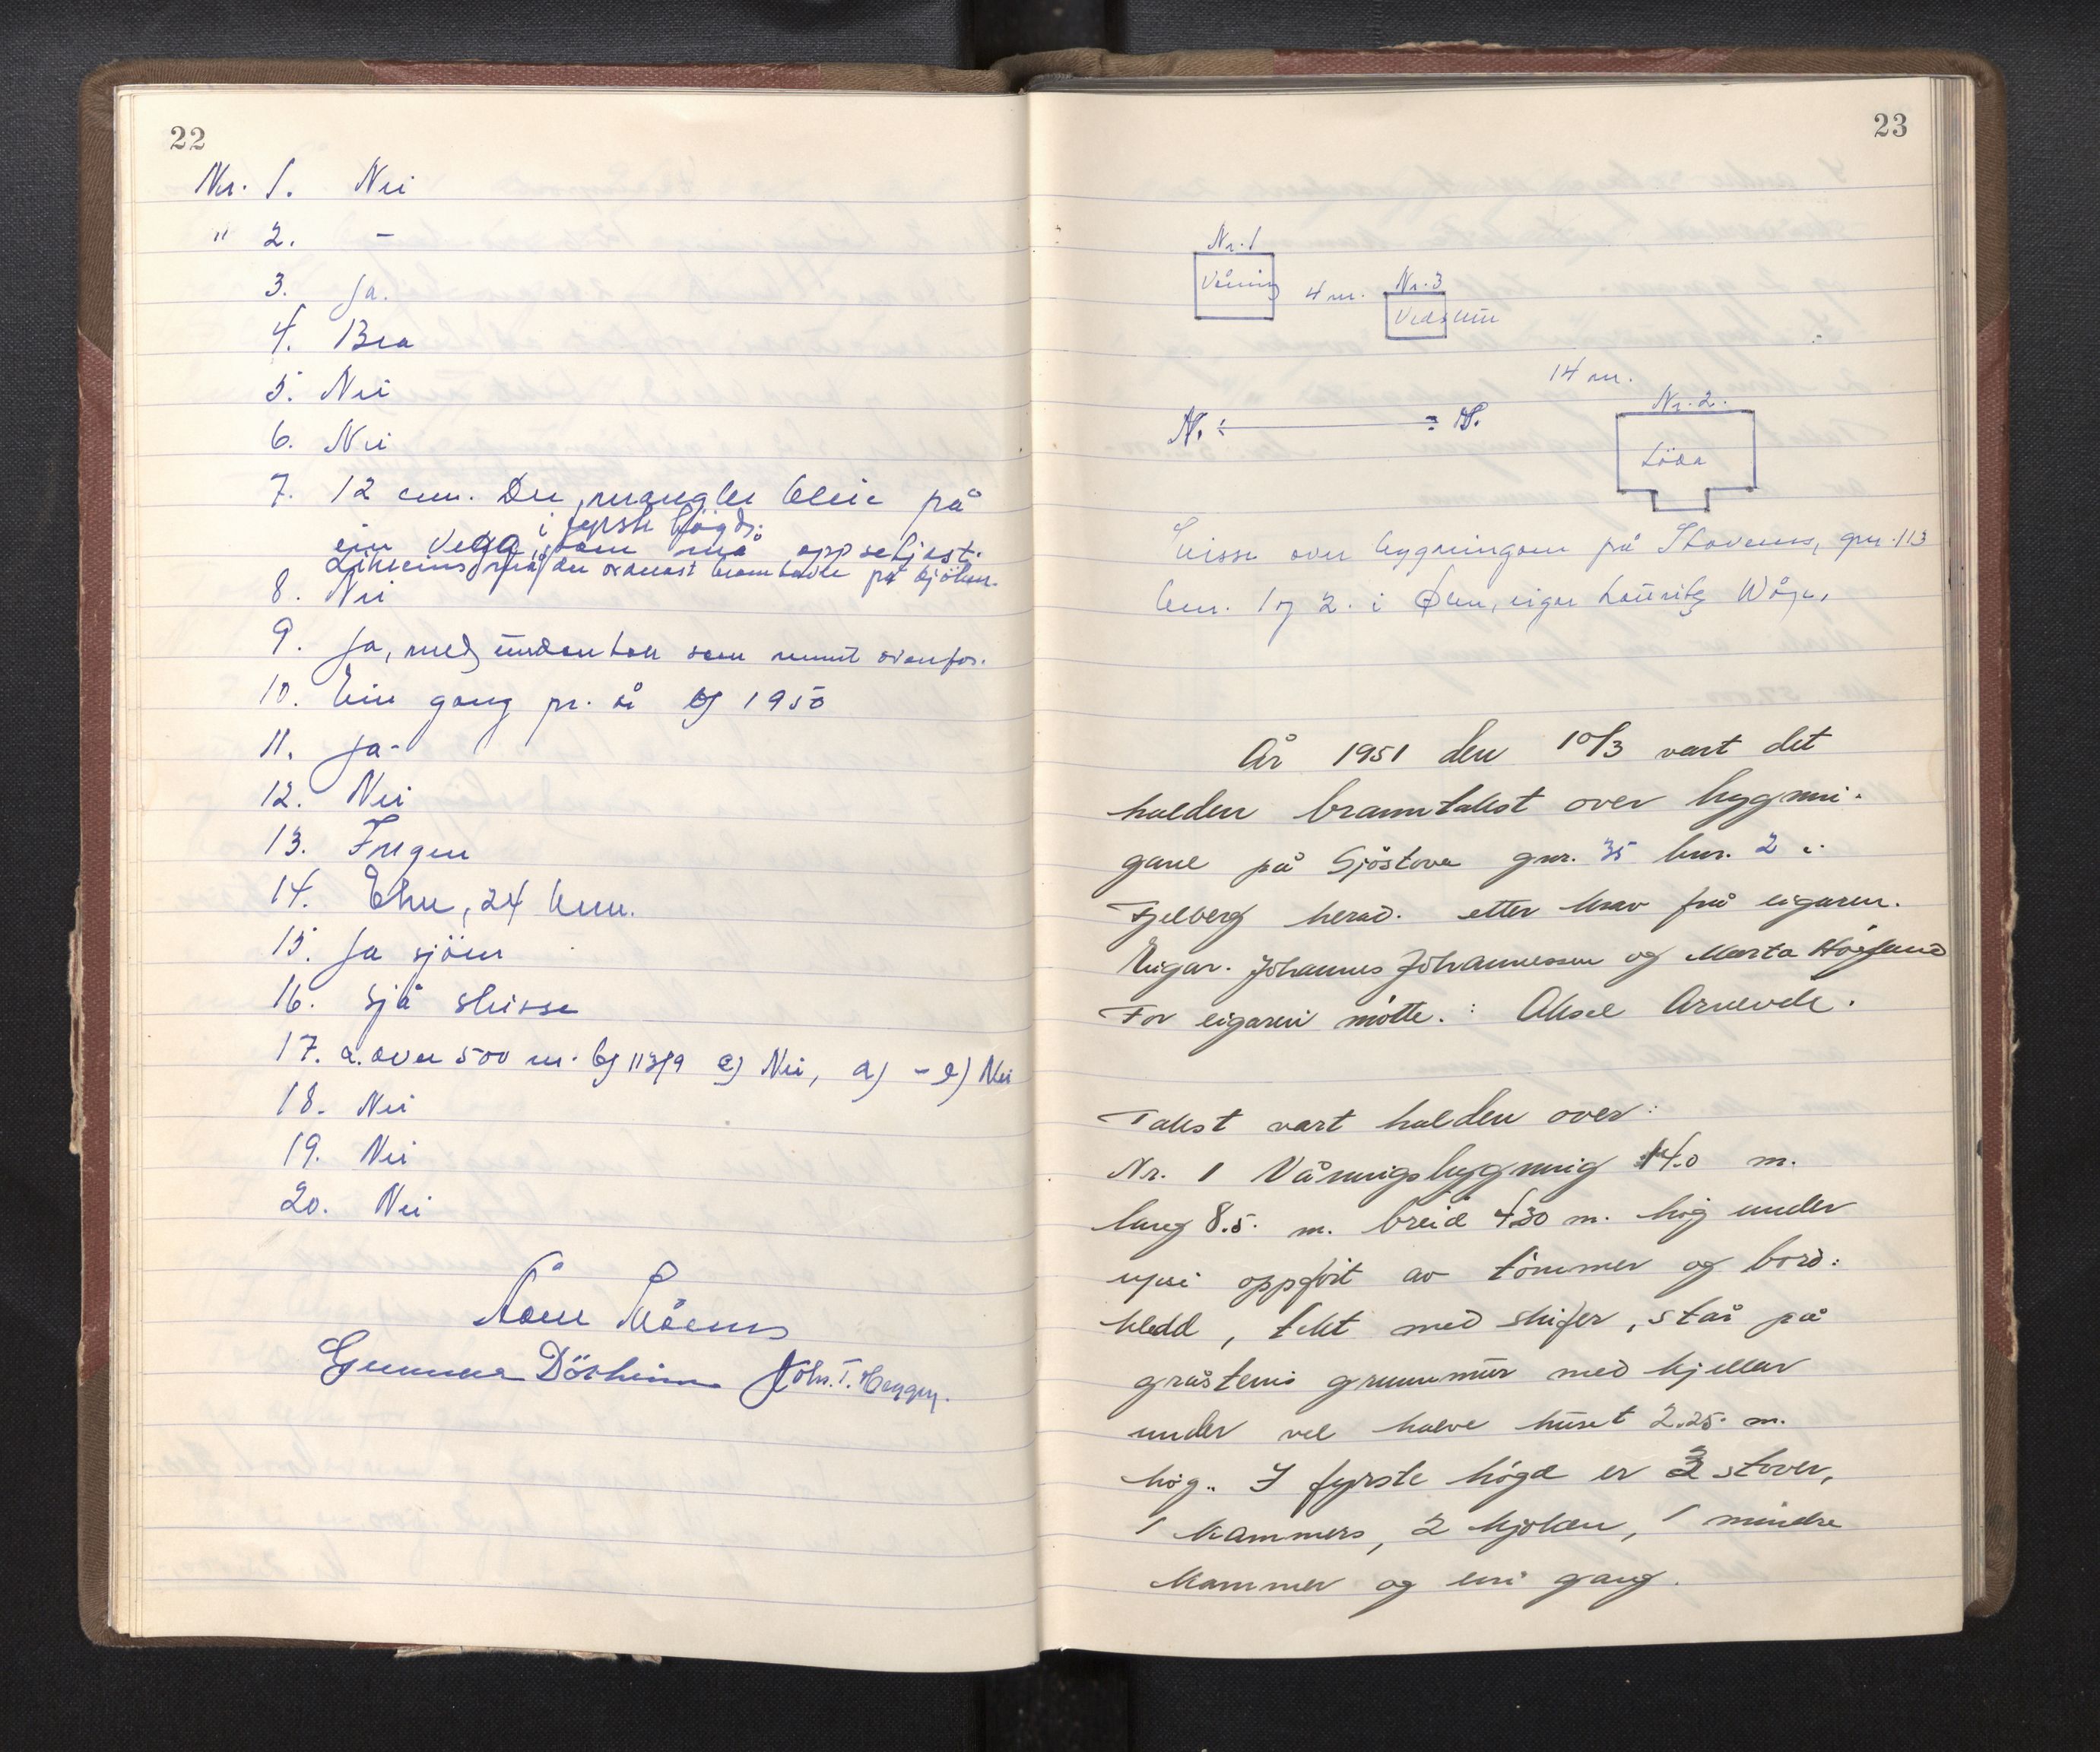 22
Nr. 1. Nei
" 2. -
3. Ja.
4. Bra
5. Nei
6. Nei
7. 12 cm. Der mangler bleie på
i fyrste högd.
ein vegg, som må oppsetjast.
Likeeins må der ordnast brannbolke på kjöken.
8. Nei
9. Ja, med undantak som nemnt ovanfor.
10. Ein gong pr. år bj 1950
11. Ja-
12. Nei
13. Ingen
14. Elen, 24 km.
15. Ja sjöen
16. Sjå skisse
17. a. over 500 m. bj 113/9 c) Nei, d) - e) Nei
18. Nei
19. Nei
20. Nei
Gunnar Dörheim Joh. T. Heggen.
23
Nr. 1
Våning
4 m.
Nr. 3
Vedskur
14 m.
Nr. 2.
Löda
N. S.
Skisse over bygningane på Skavens, gnr. 113
bnr. 1 og 2. i Ølen, eigar Lauritz Våge.
År 1951 den 10/3 vart det
halden branntakst over bygnin-
gane på Sjöstova gnr. 35 bnr. 2 i
Fjelberg herad. etter krav frå eigaren.
Eigar. Johannes Johannessen og Marta Høgland
For eigaren møtte: Aksel Arnevik.
Takst vart halden over:
Nr. 1 Våningsbygning 14.0 m.
lang 8.5. m. breid 4.30 m. høg under
upsi oppført av tömmer og bord-
kledd, tekt med skifer, står på
gråsteins grunnmur med kjellar
under vel halve huset 2.25. m.
høg.. I fyrste høgd er 3 stover,
1 kammers, 2 kjøken, 1 mindre
kammer og ein gang.